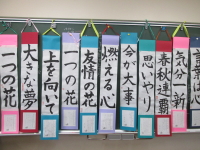 言葉は心
気分一新
春秋連覇
思いやり
今が大事
燃える心
友情の花
一つの花
上を向いて
大きな夢
一つの花